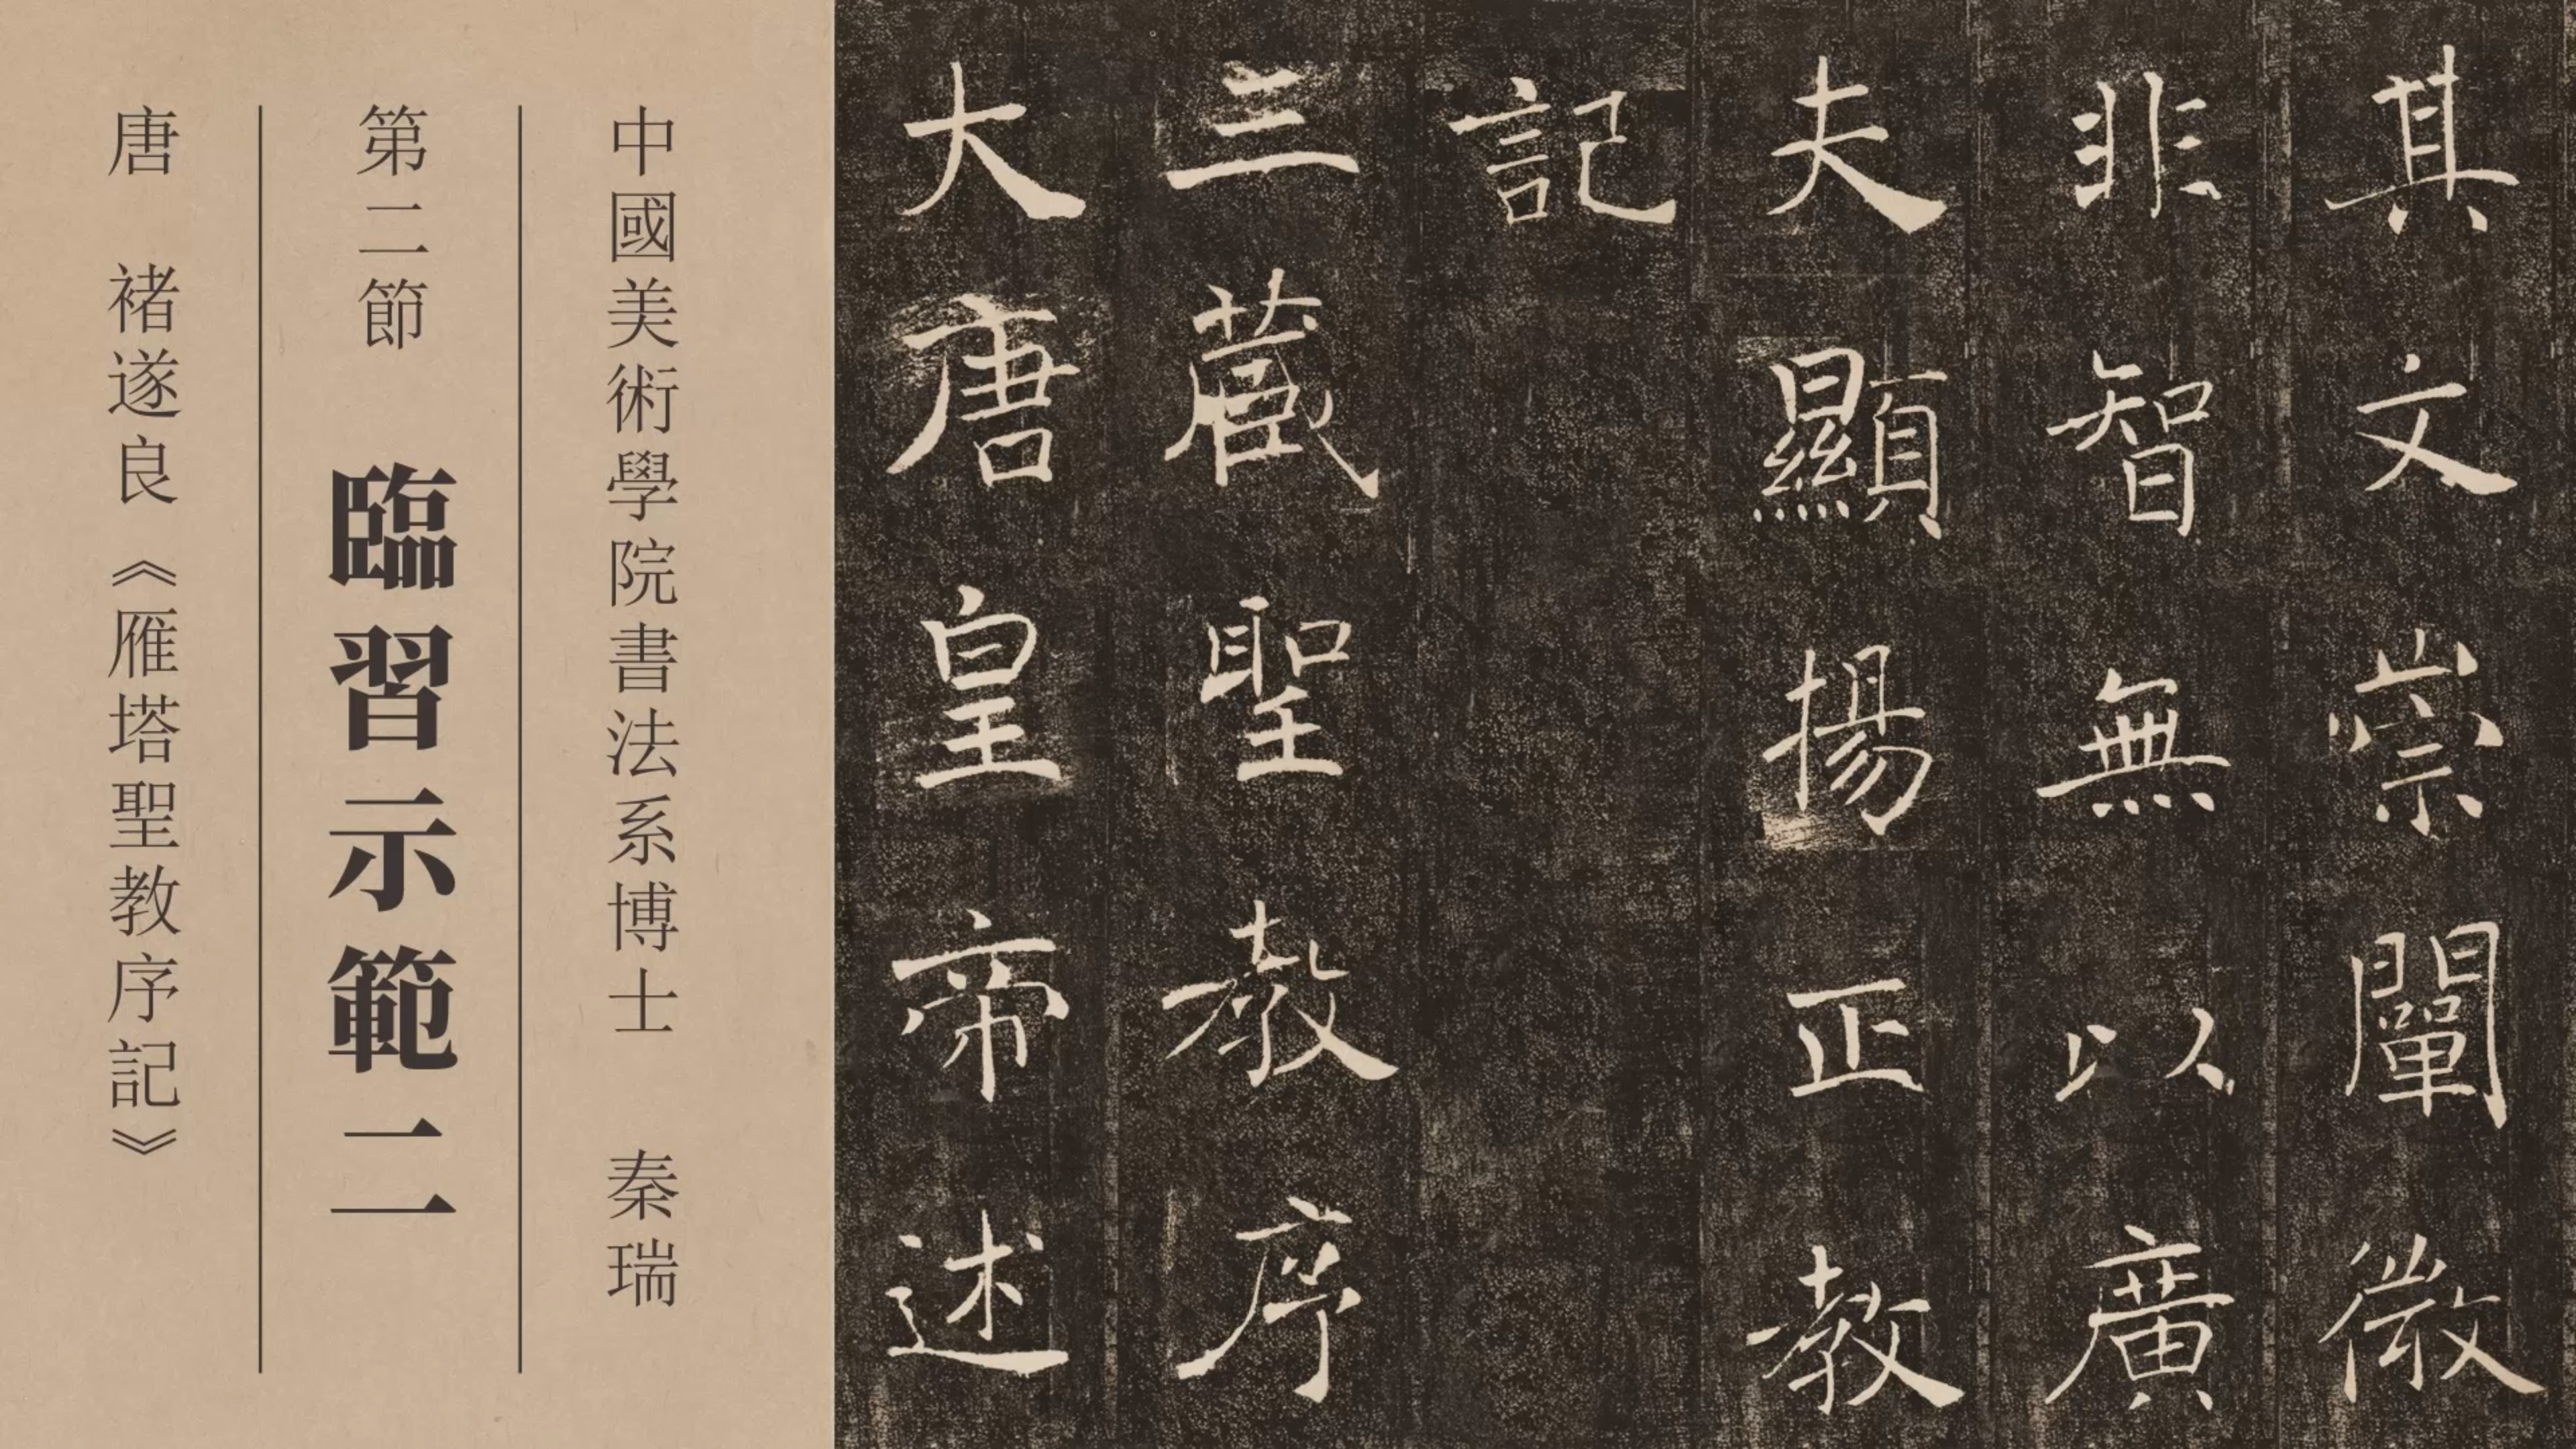 唐 褚遂良《雁塔聖教序記》
第二節 臨習示範二
中國美術學院書法系博士 秦瑞
大唐皇帝述
三藏聖教序
記
夫顯揚正教
非智無以廣
其文崇闡微